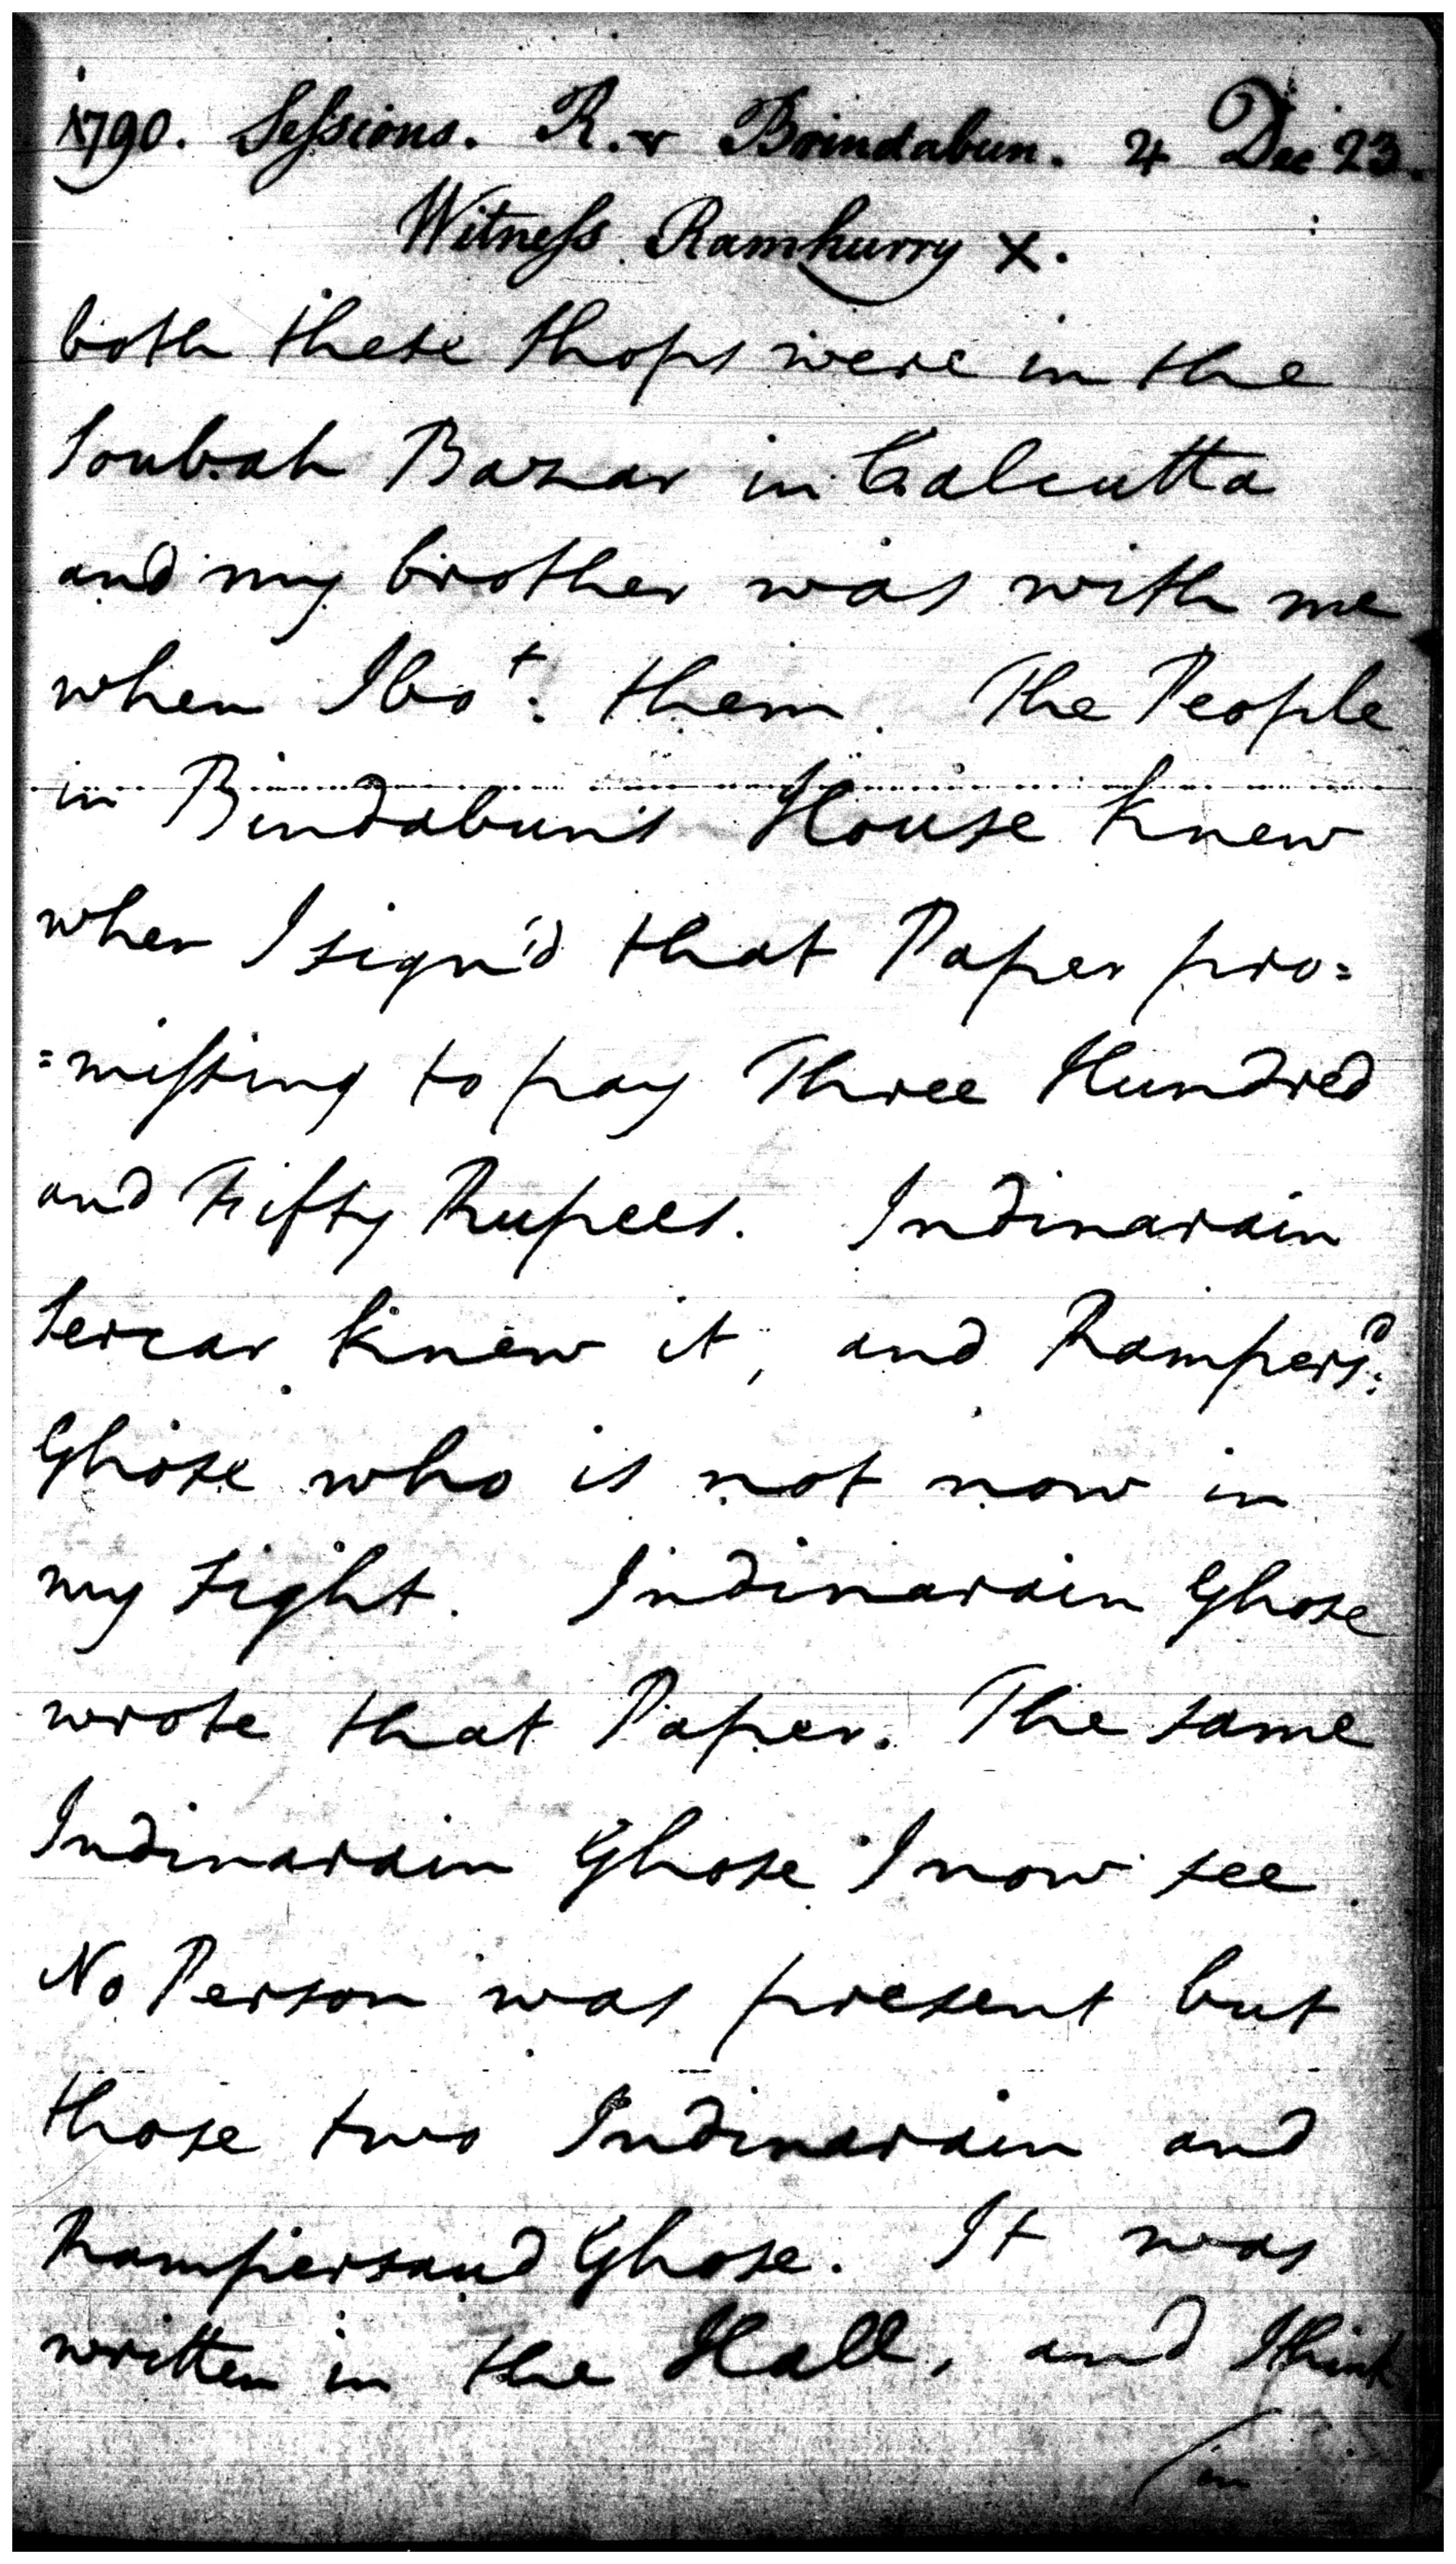 1790. Sessions. R. v Brindabun. 4 Dec 23.
Witness Ramhurry X.
both these shops were in the
Soubah Bazar in Calcutta
and my brother was with me
when I bo.t them. The People
in Bindabun's House knew
when I sign'd that Paper pro=
=missing to pay Three Hundred
and Fifty Rupees. Indinarain
Sercar knew it, and Rampers:d
Ghose who is not now in
my sight. Indinarain Ghose
wrote that Paper. The same
Indinarain Ghose I now see.
No Person was present but
those two Indinarain and
Rampersaud Ghose. It was
written in the Hall, and I think
/in